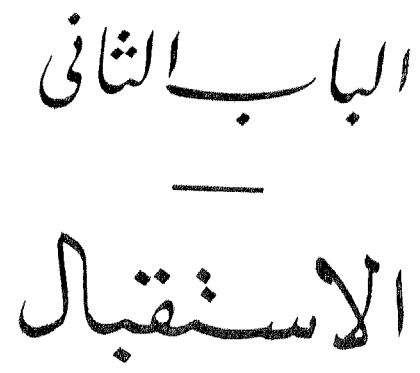 الباب الثانى
الاستقبال